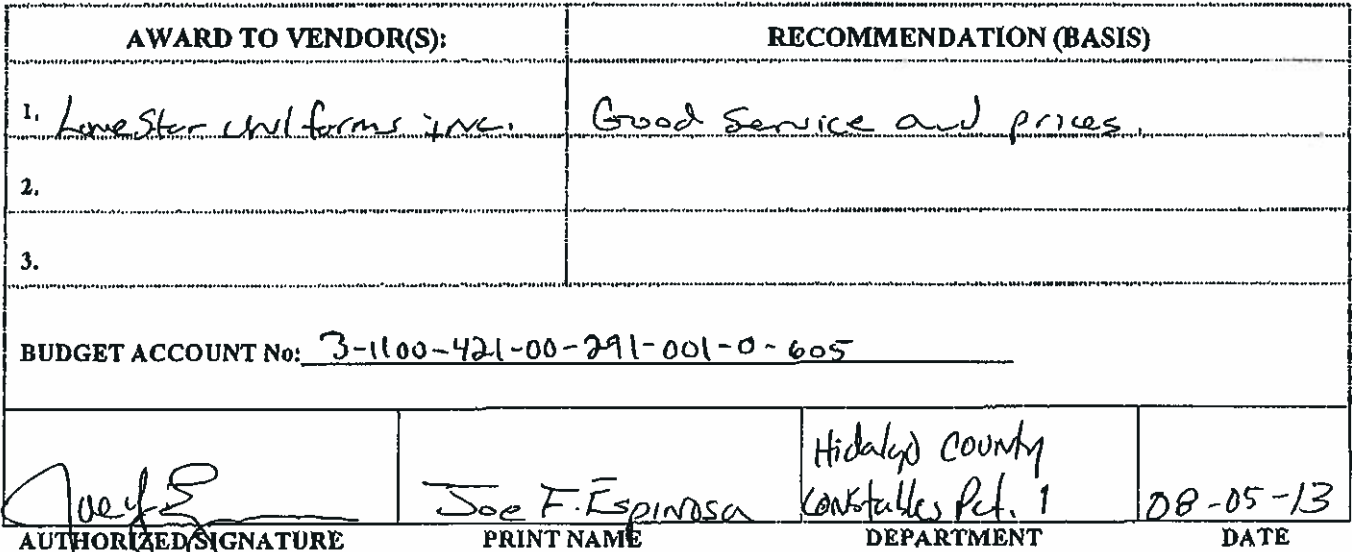 AWARD TO VENDOR(S): RECOMMENDATION (BASIS)
1. LoneStar Uniforms inc. Good Service and prices.
2.
3.
BUDGET ACCOUNT No: 3-1100-421-00-291-001-0-605
Hidalgo County
Joe F. Espinosa Constables Pct. 1 08-05-13
AUTHORIZED SIGNATURE PRINT NAME DEPARTMENT DATE